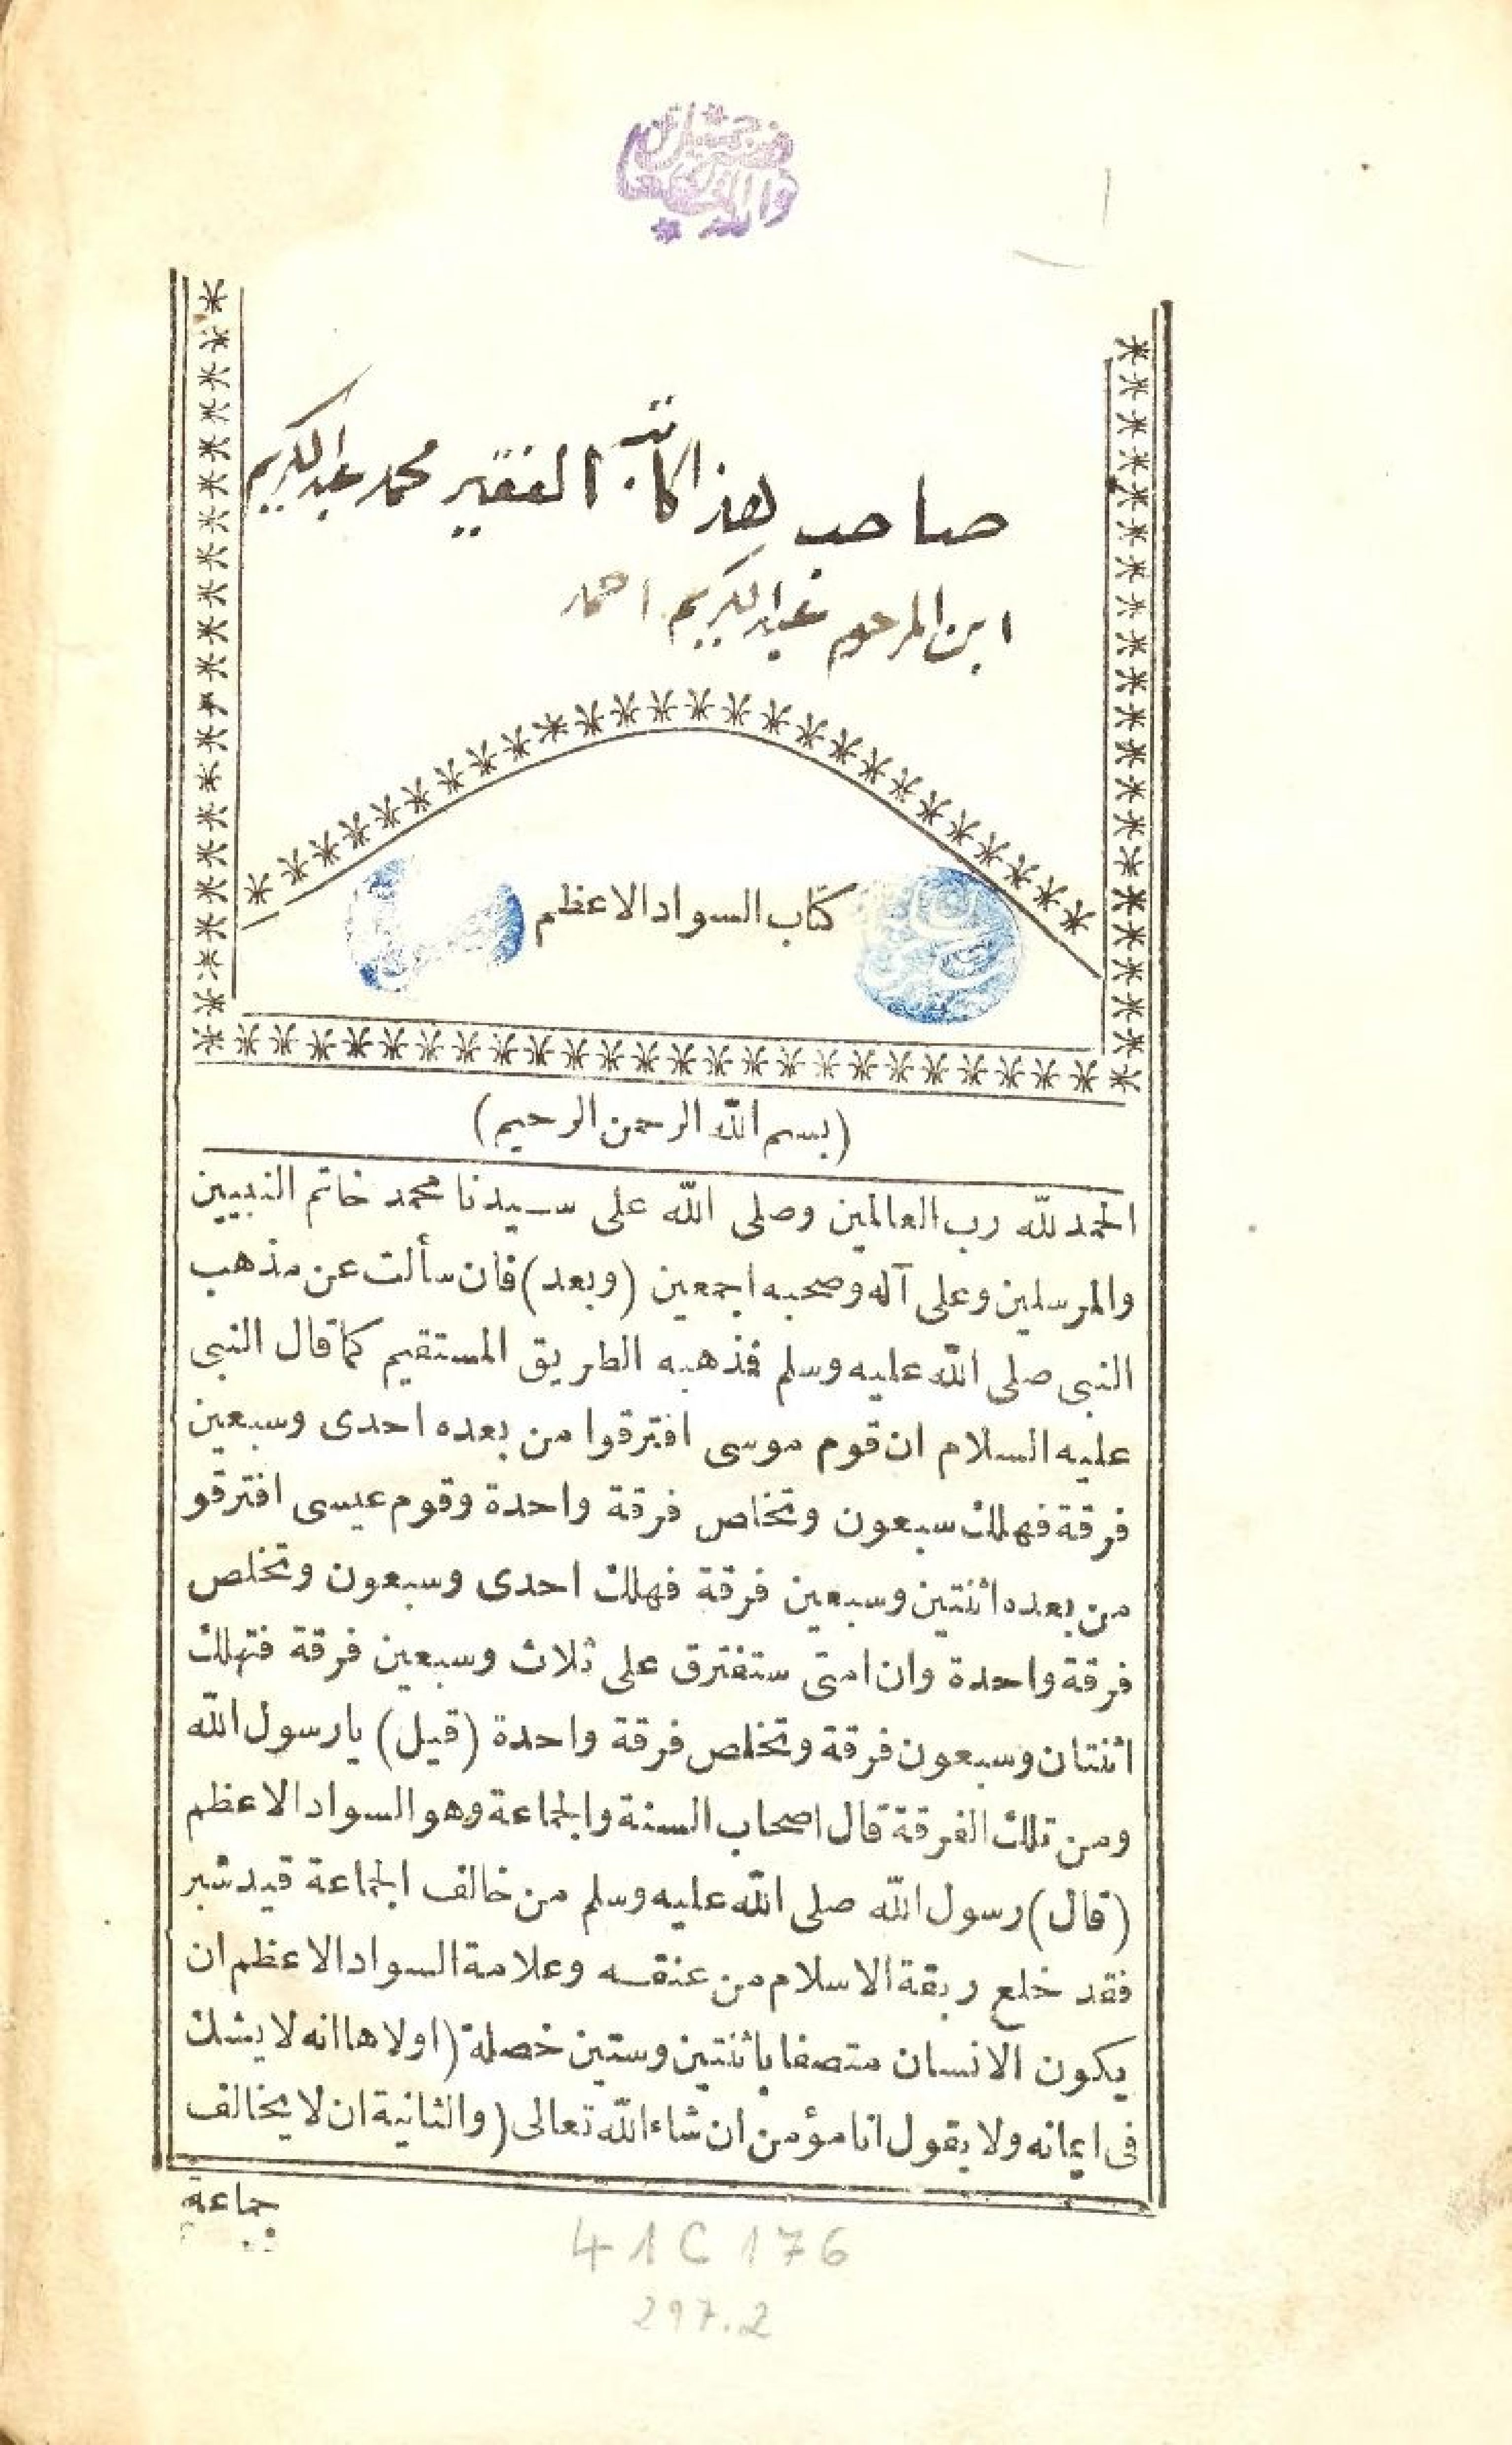 صاحب هذا الكتاب الفقير محمد عبد الكريم
ابن المرحوم عبد الكريم احمد
كتاب السواد الاعظم
(بسم الله الرحمن الرحيم)
الحمد لله رب العالمين وصلى الله على سيدنا محمد خاتم النبيين
والمرسلين وعلى آله وصحبه اجمعين (وبعد) فان سألت عن مذهب
النبى صلى الله عليه وسلم فذهبه الطريق المستقيم كما قال النبى
عليه السلام ان قوم موسى افترقوا من بعده احدى وسبعين
فرقة فهلك سبعون وتخاص فرقة واحدة وقوم عيسى افترقو
من بعده اثنتين وسبعين فرقة فهلك احدى وسبعون وتخلص
فرقة واحدة وان امتى ستفترق على ثلاث وسبعين فرقة فتهلك
اثنتان وسبعون فرقة وتخلص فرقة واحدة (قيل) يا رسول الله
ومن تلك الفرقة قال اصحاب السنة والجماعة وهو السواد الاعظم
(قال) رسول الله صلى الله عليه وسلم من خالف الجماعة قيد شبر
فقد خلع ربقة الاسلام من عنقه وعلامة السواد الاعظم ان
يكون الانسان متصفا باثنتين وستين خصلة (اولاها انه لا يشك
فى ايمانه ولا يقول انا مؤمن ان شاء الله تعالى (والثانية ان لا يخالف
جماعة
41C176
297.2